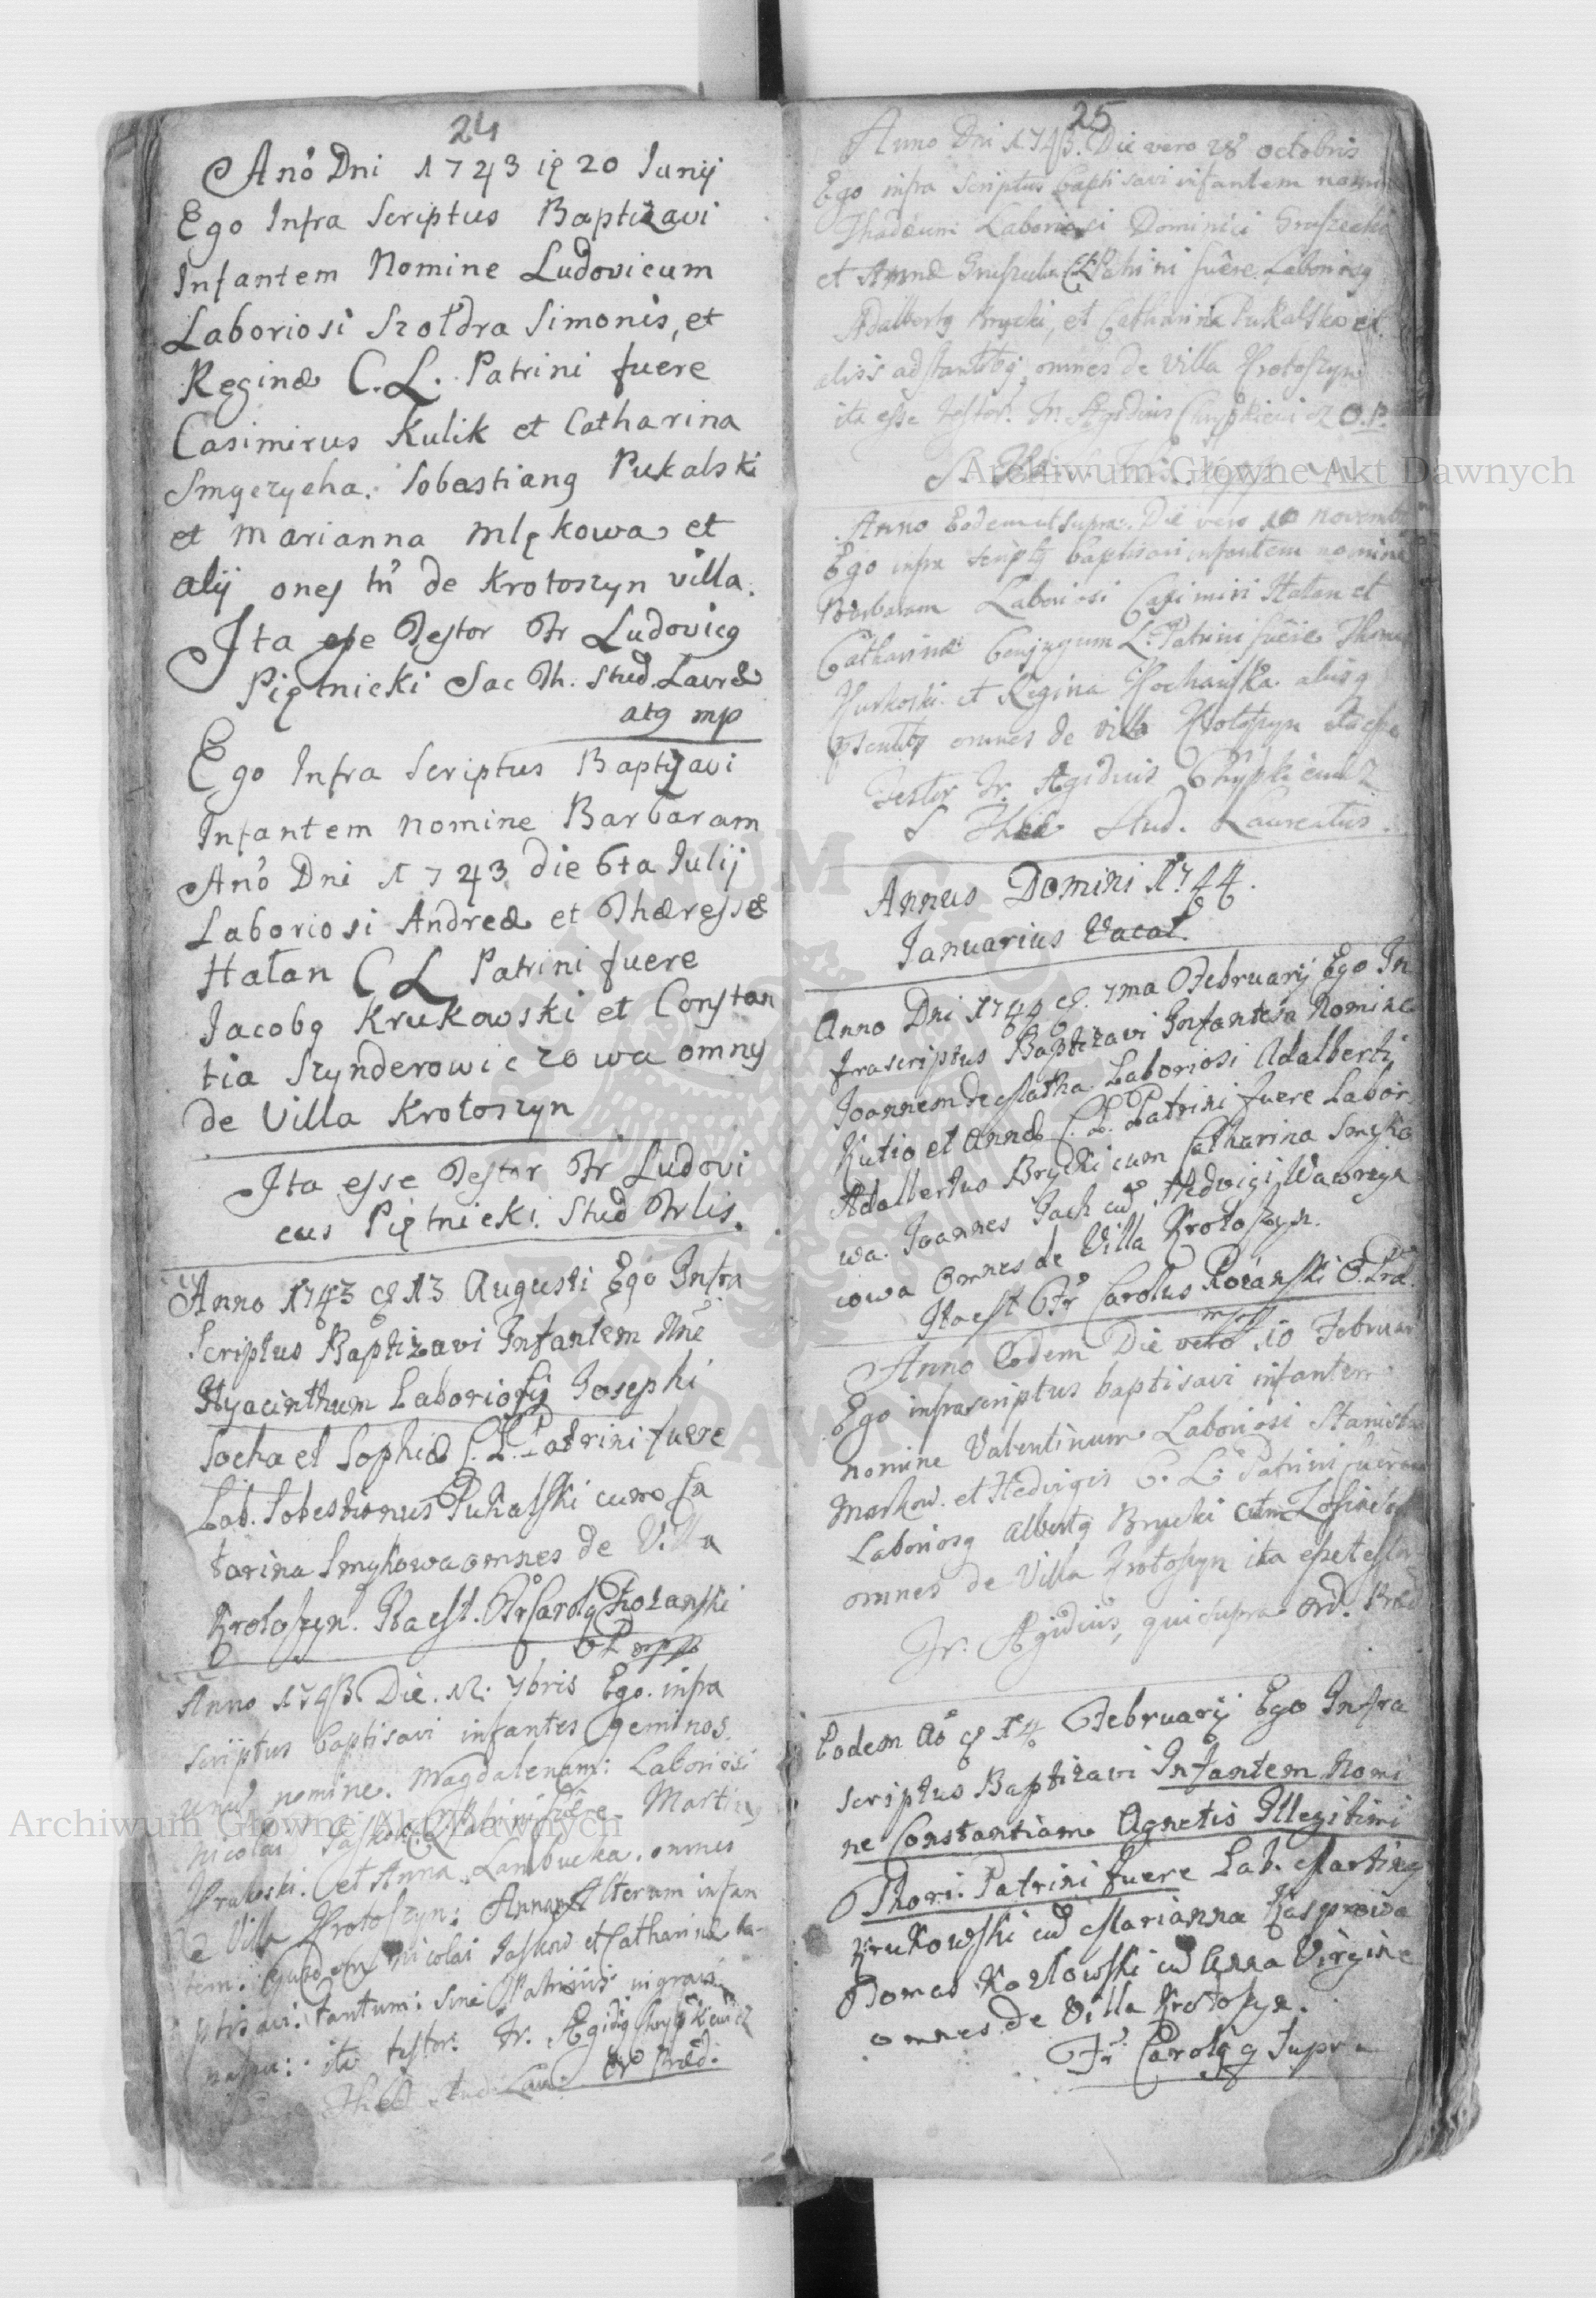 24
Ano Dni 1743 ię 20 Iunij
Ego Infra Scriptus Baptizavi
Infantem Nomine Ludovicum
Laboriosi Szołdra Simonis, et
Reginæ C. L. Patrini fuere
Casimirus Kulik et Catharina
Smyczycha. Sobastiang Pukalski
et Marianna Mlękowa et
alij oney tn de Krotoszyn villa.
Ita esse Testor Fr Ludovicg
Piętnicki Sac Th. Stud. Lavræ
atg mp
Ego Infra Scriptus Baptizavi
Infantem Nomine Barbaram
Ano Dni 1743 die 6ta Iulij
Laboriosi Andreæ et Thæressæ
Hałan C L Patrini fuere
Iacobg Krukowski et Constan
tia Szynderowiczowa omnes
de Villa Krotoszyn
Ita esse Testor Fr Ludovi
cus Piętnicki. Stud Frlis.
Anno 1743 13 Augusti Ego Infra
Scriptus Baptizavi Infantem Nne
Hyacinthum Laboriosy Iosephi
Socha et Sophiæ C. L. Patrini fuere
Lab. Sobestianus Pukalski cum Ca
tarina Smykowa omnes de Villa
Krotoszyn. Ita est. Fr Carolg Rozanski
OP mpp
Anno 1743 Die. 12. 7bris Ego. infra
scriptus baptisavi infantes geminos.
unus nomine. Magdalenam: Laboriosi
Nicolai Jaskow Patrini fuere. Marting
Krukoski. et Anna Lambucka. omnes
de Villa Krotoszyn: Annam Alteram infan
tem: Nicolai Jaskow et Catharinæ ba-
ptisavi. tantum: sine Patrinis
ita testor: Fr. Ægidig Chrypkiewicz
Theo Stud. Lau: Or Præd.
25
Anno Dni 1743. Die vero 28 octobris
Ego infra Scriptus baptisavi infantem nomin
Thadæum Laboriosi Dominici Gruszecki
et Annæ C L Patrini fuere. Laboriosg
Adalbertg Brycki, et Catharina Pukalska et
aliis adstantibg, omnes de villa Krotoszyn
ita esse testor. Fr. Ægidius Chrypkiewicz O.P.
Anno Eodem ut Supra. Die vero 10 Novemb
Ego infra scriptg baptisavi infantem nomine
Barbaram Laboriosi Casimiri Hałan et
Catharinæ Conjugum L. Patrini fuere Thom
et Regina Kochańska aliisq
omnes de villa Krotoszyn ita esse
Testor Fr. Ægidius Chrypkiewicz
S Theo Stud. Laureatus.
Annus Domini 1744.
Ianuarius Vacat.
Anno Dni 1744 7ma February Ego In
frascriptus Baptizavi Infantem Nomine
Joannem de Matha Laboriosi Adalberti
Kutio et Annæ C. L. Patrini fuere Labor.
Adalbertus Brycki cum Catharina Smyko
wa. Joannes Jach cu Hedvigi Wawrzyn
cowa Omnes de Villa Krotoszyn.
Ita est Fr Carolus Rozanski O. Præd.
mpp
Anno Eodem Die vero 10 Februar
Ego infrascriptus baptisavi infantem
nomine Valentinum. Laboriosi Stanisla
Markow. et Hedvigis C. L. Patrini fuerunt
Laboriosg Albertg Brycki cum
omnes de Villa Krotoszyn ita esse testor
Fr. Ægidius, qui supra Ord. Præd
Eodem Ao 14 February Ego Infra
scriptus Baptizavi Infantem Nomi
ne Constantiam Agnetis Illegitimi
Thori. Patrini fuere Lab. Marting
Krukowski cu Marianna Kasprowa
Tomas Kozlowski cu Anna Virgine
omnes de Villa Krotoszyn.
Fr Carolg q Supra
Archiwum Główne Akt Dawnych
Archiwum Główne Akt Dawnych
ARCHIWUM GŁÓWNE AKT DAWNYCH